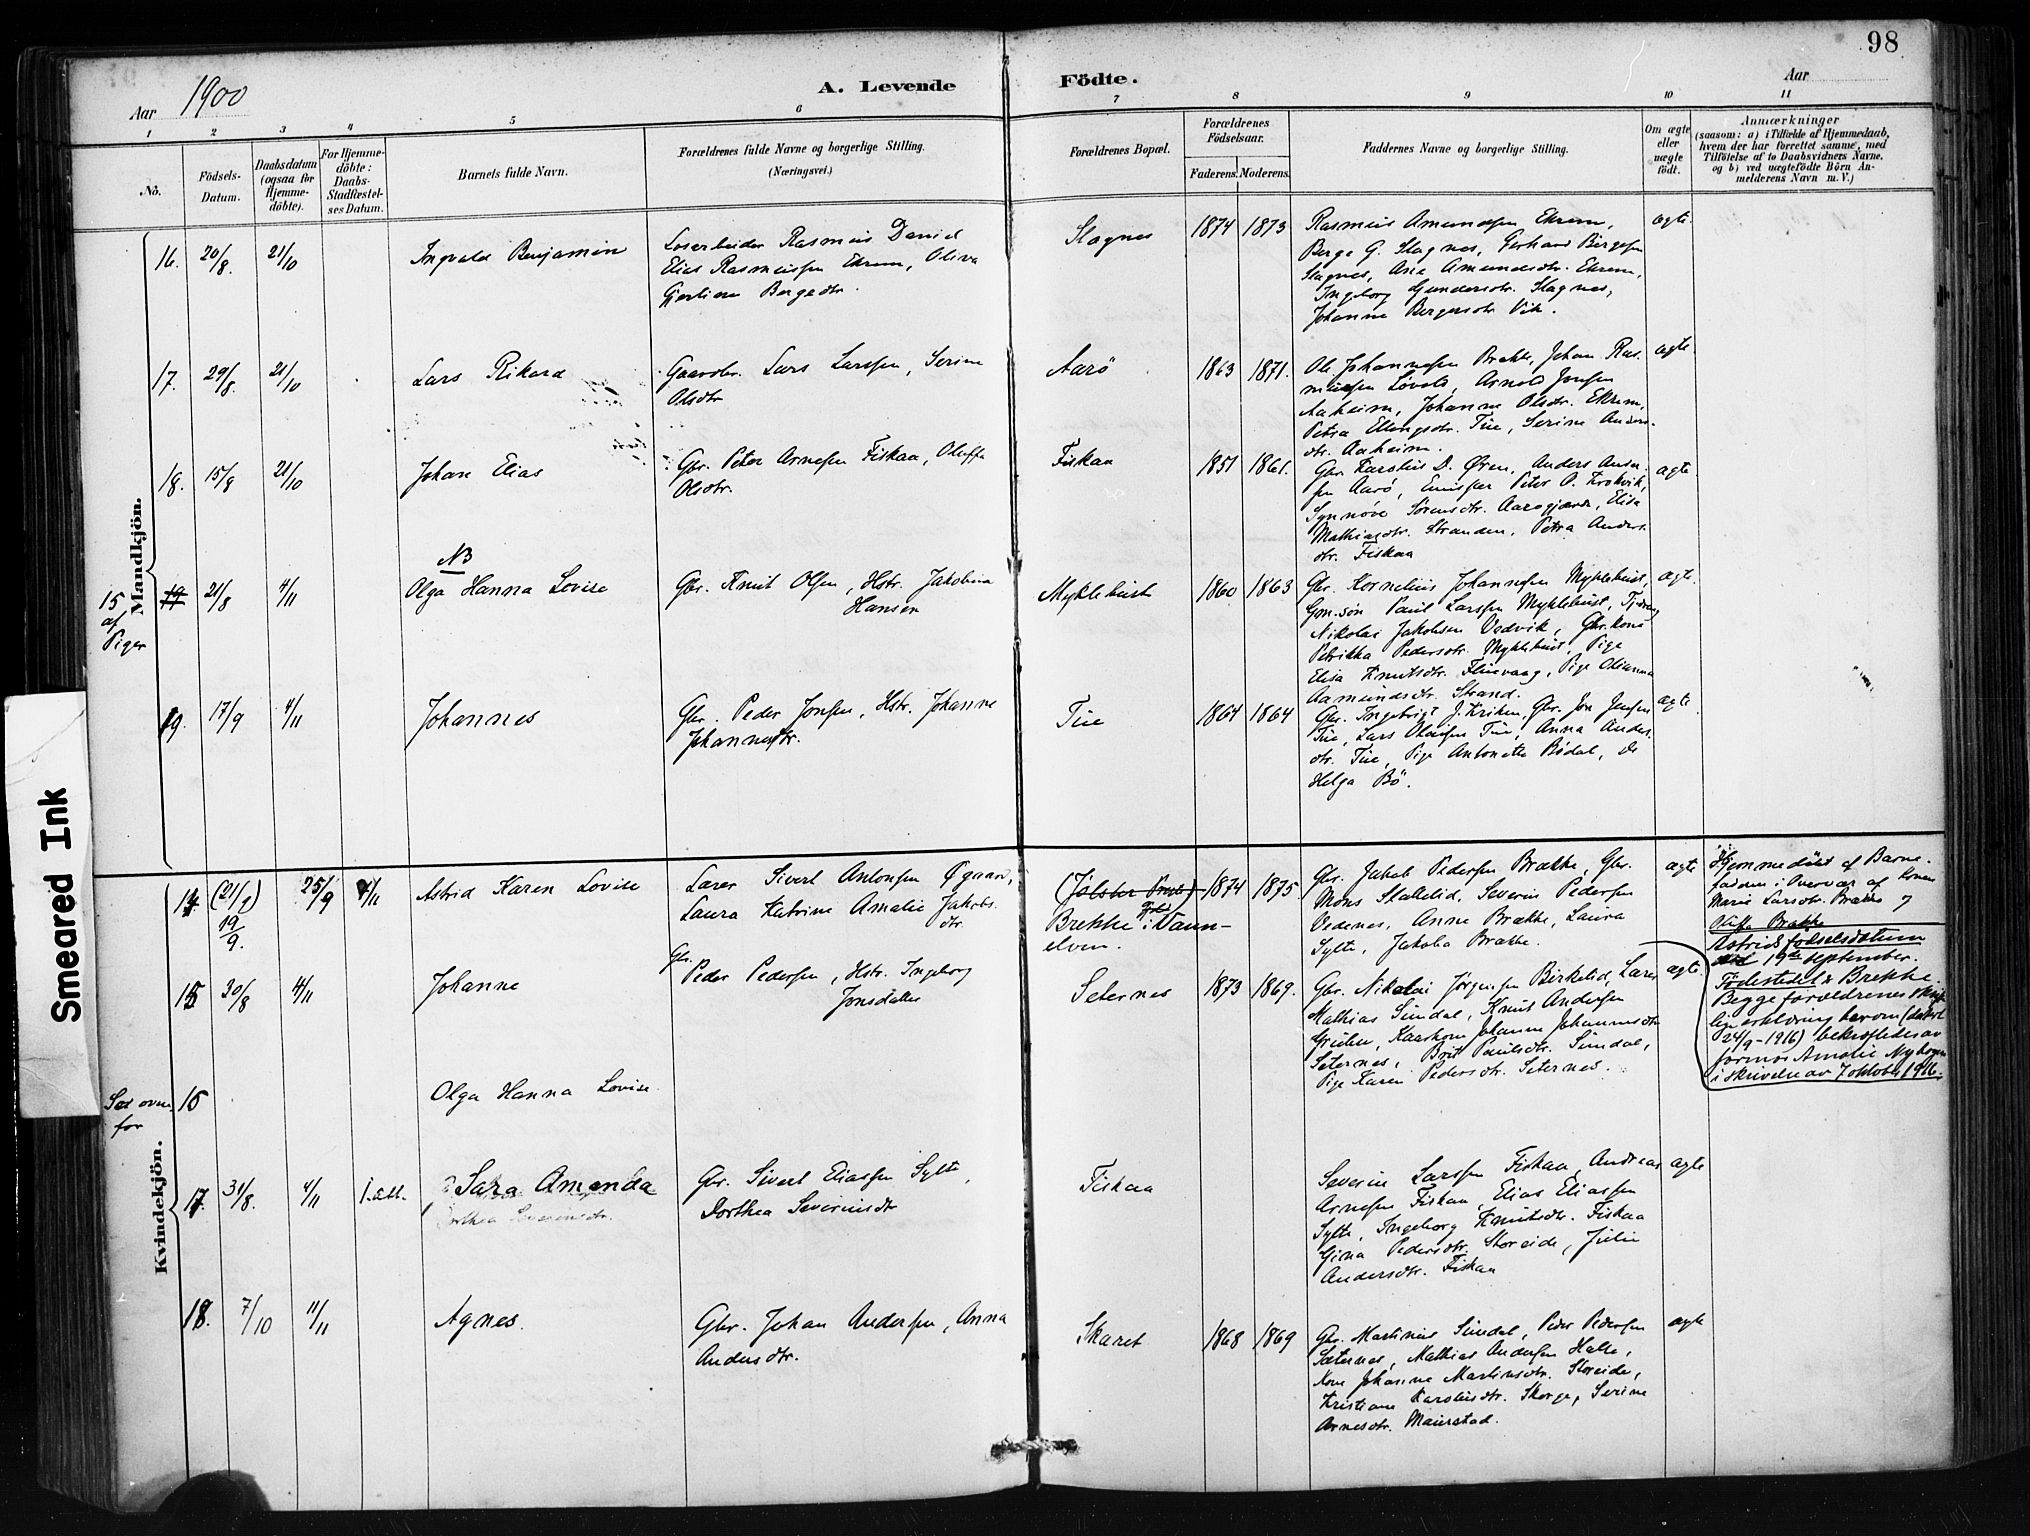 98
Aar 1900
A. Levende Födte.
Aar
1 2 3 4 5 6 7 8 9 10 11
No.
Födsels-Datum.
Daabsdatum (ogsaa for Hjemmedöbte).
For Hjemmedöbte: Daabs-Stadfæstelses Datum.
Barnets fulde Navn.
Forældrenes fulde Navne og borgerlige Stilling. (Næringsvei.)
Forældrenes Bopæl.
Forældrenes Födselsaar.
Faderens. Moderens.
Faddernes Navne og borgerlige Stilling.
Om ægte eller uægte födt.
Anmærkninger
(saasom: a) i Tilfælde af Hjemmedaab, hvem der har forrettet samme, med Tilföielse af to Daabsvidners Navne. og b) ved uægtefödte Börn Anmelderens Navn m. V.)
Mandkjön.
16. 20/8. 21/10 Ingvald Benjamin
Løsarbeider Rasmus Daniel
Elias Rasmussen Ekrem, Oliva
Gjertine Bergedtr.
Slagnes 1874 1873
Rasmus Amundsen Ekrem,
Berge G. Slagnes, Gerhard Bergesen
Slagnes, Ane Amundsdtr. Ekrem,
Ingeborg Gundersdtr. Slagnes,
Johanne Bergersdtr. Vik.
ægte
17. 29/8. 21/10 Lars Rikard
Gaardbr. Lars Larssen, Serine
Olsdtr
Aarö 1863 1871.
Ole Johannessen Brekke, Johan Ras-
mussen Løvold, Arnold Jonsen
Aaheim, Johanne Olsdtr. Ekrem,
Petra Ellingsdtr. Tue, Serine Anders-
dtr. Aaheim.
ægte
18. 15/8 21/10 Johan Elias
Gbr. Peter Arnesen Fiskaa, Oluffa
Olsdtr.
Fiskaa 1851 1861.
Gbr. Karolus D. Øren, Anders Ander-
sen Aarö, Peter O. Krokvik,
Synnøve Sørensdtr. Aarogjærde, Elisa
Mathiasdtr. Stranden, Petra Anders-
dtr. Fiskaa
ægte
NB
15 af Piger
19 21/8 4/11 Olga Hanna Lovise
Gbr. Knut Olsen, Hstr. Jakobina
Hansen
Myklebust 1860 1863
Gbr. Kornelius Johannesen Myklebust,
Gm.søn Paul Larssen Myklebust, Tjdreng
Nikolai Jakobsen Vedvik, Gbr.kone
Petrikka Pedersdtr. Myklebust, Pige
Elisa Knutsdtr. Fluevaag, Pige Olianna
Aamundsdtr. Strand.
ægte
19. 17/9 4/11 Johannes
Gbr. Peder Jonsen, Hstr. Johanne
Johannesdtr.
Tue 1864 1864
Gbr. Ingebrigt J. Kriken, Gbr. Jon Jensen
Tue, Lars Olaisen Tue, Anna Anders-
dtr. Tue, Pige Antonette Bødal, do
Helga Bö.
ægte
Kvindekjön.
14. (21/9) 19/9. 25/9 4/11 Astrid Karen Lovise
Lærer Sivert Antonsen Øgaard,
Laura Katrine Amalie Jakobs-
dtr.
(Jölster Præst)
Brekke i Vann-
elven.
1874 1875.
Gbr. Jakob Pedersen Brække, Gbr.
Mons Stallelid, Severin Pedersen
Vedenes, Anne Brække, Laura
Sylte, Jakoba Brække.
ægte
Hjemmedøbt af Barne-
faderen i Overvær af Konen
Marie Larsdtr. Brække og
Oluffa Brække
Astrids fødselsdatum
19de september.
Fødestedet er Brekke.
Begge forældrenes skrift-
lige erklæring herom (datert
24/9-1916) bekræftedes av
jormor Amalie Myhren
i skrivelse av 7 oktober 1916.
15 30/8 4/11 Johanne
Gbr. Peder Pedersen, Hstr. Ingeborg
Jonsdatter
Seternes 1873 1869.
Gbr. Nikolai Jørgensen Birkelid, Lærer
Mathias Sundal, Knut Andersen
Grüben, Kaarkone Johanne Johannesdtr
Seternes, Brit Paulsdtr. Sundal,
Pige Karen Pedersdtr. Seternes.
ægte.
Se ovenfor
16 Olga Hanna Lovise.
17. 31/8. 4/11 Sara Amanda
Gbr. Sivert Eliassen Sylte,
Dorthea Severinsdtr
Fiskaa
Severin Larssen Fiskaa, Andreas
Arnesen Fiskaa, Elias Eliassen
Sylte, Ingeborg Knutsdtr. Fiskaa
Gina Pedersdtr. Storeide, Julie
Andersdtr. Fiskaa
ægte
18. 7/10 11/11 Agnes.
Gbr. Johan Andersen, Anna
Andersdtr.
Skaret 1868 1869
Gbr. Martinus Sundal, Peder Pedersen
Sæternes, Mathias Andersen Halse,
Kone Johanne Martinsdtr. Storeide,
Kristiane Karolusdtr. Skorge, Serine
Arnesdtr. Maurstad.
ægte
Smeared Ink